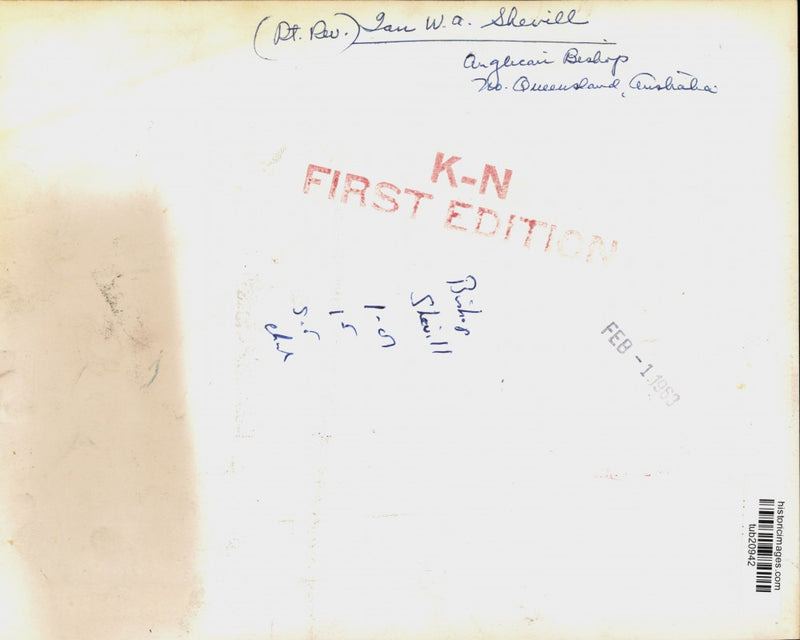 (Rt. Rev.) Ian W. A. Shevill
Anglican Bishop
No. Queensland, Australia
K-N
FIRST EDITION
Bishop
Shevill
1-5
15
FEB -1 1963
historicimages.com
tub20942